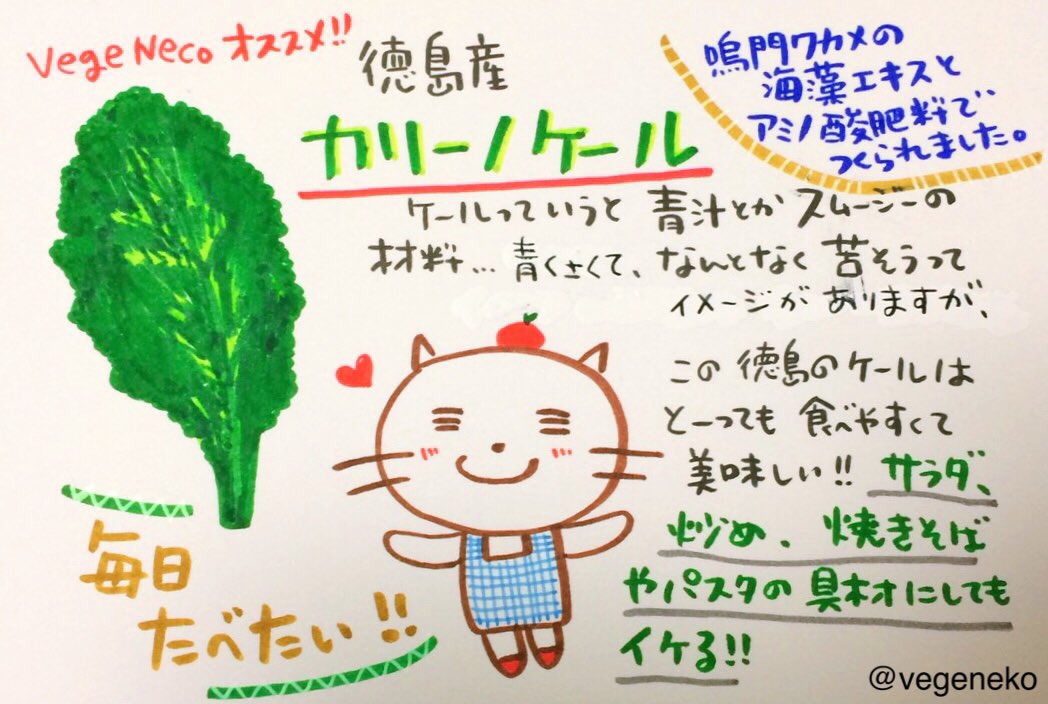 Vege Neco オススメ!!
徳島産
カリーノケール
鳴門ワカメの
海藻エキスと
アミノ酸肥料で
つくられました。
ケールっていうと 青汁とか スムージーの
材料… 青くさくて、なんとなく 苦そうって
イメージが ありますが、
この 徳島のケールは
とーっても 食べやすくて
美味しい!! サラダ、
炒め、焼きそば
やパスタの 具材にしても
イケる!!
毎日
たべたい!!
@vegeneko